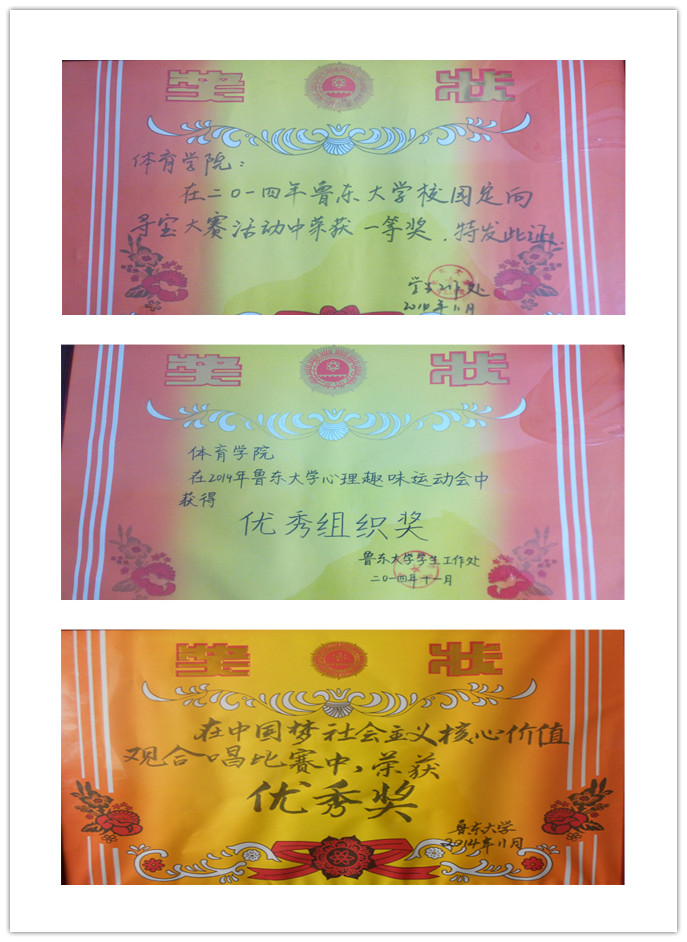 奖 状
体育学院：
在二〇一四年鲁东大学校园定向
寻宝大赛活动中荣获一等奖，特发此证。
学生工作处
2014年11月
奖 状
体育学院
在2014年鲁东大学心理趣味运动会中
获得
优秀组织奖
鲁东大学学生工作处
二〇一四年十一月
奖 状
在中国梦社会主义核心价值
观合唱比赛中，荣获
优秀奖
鲁东大学
2014年11月